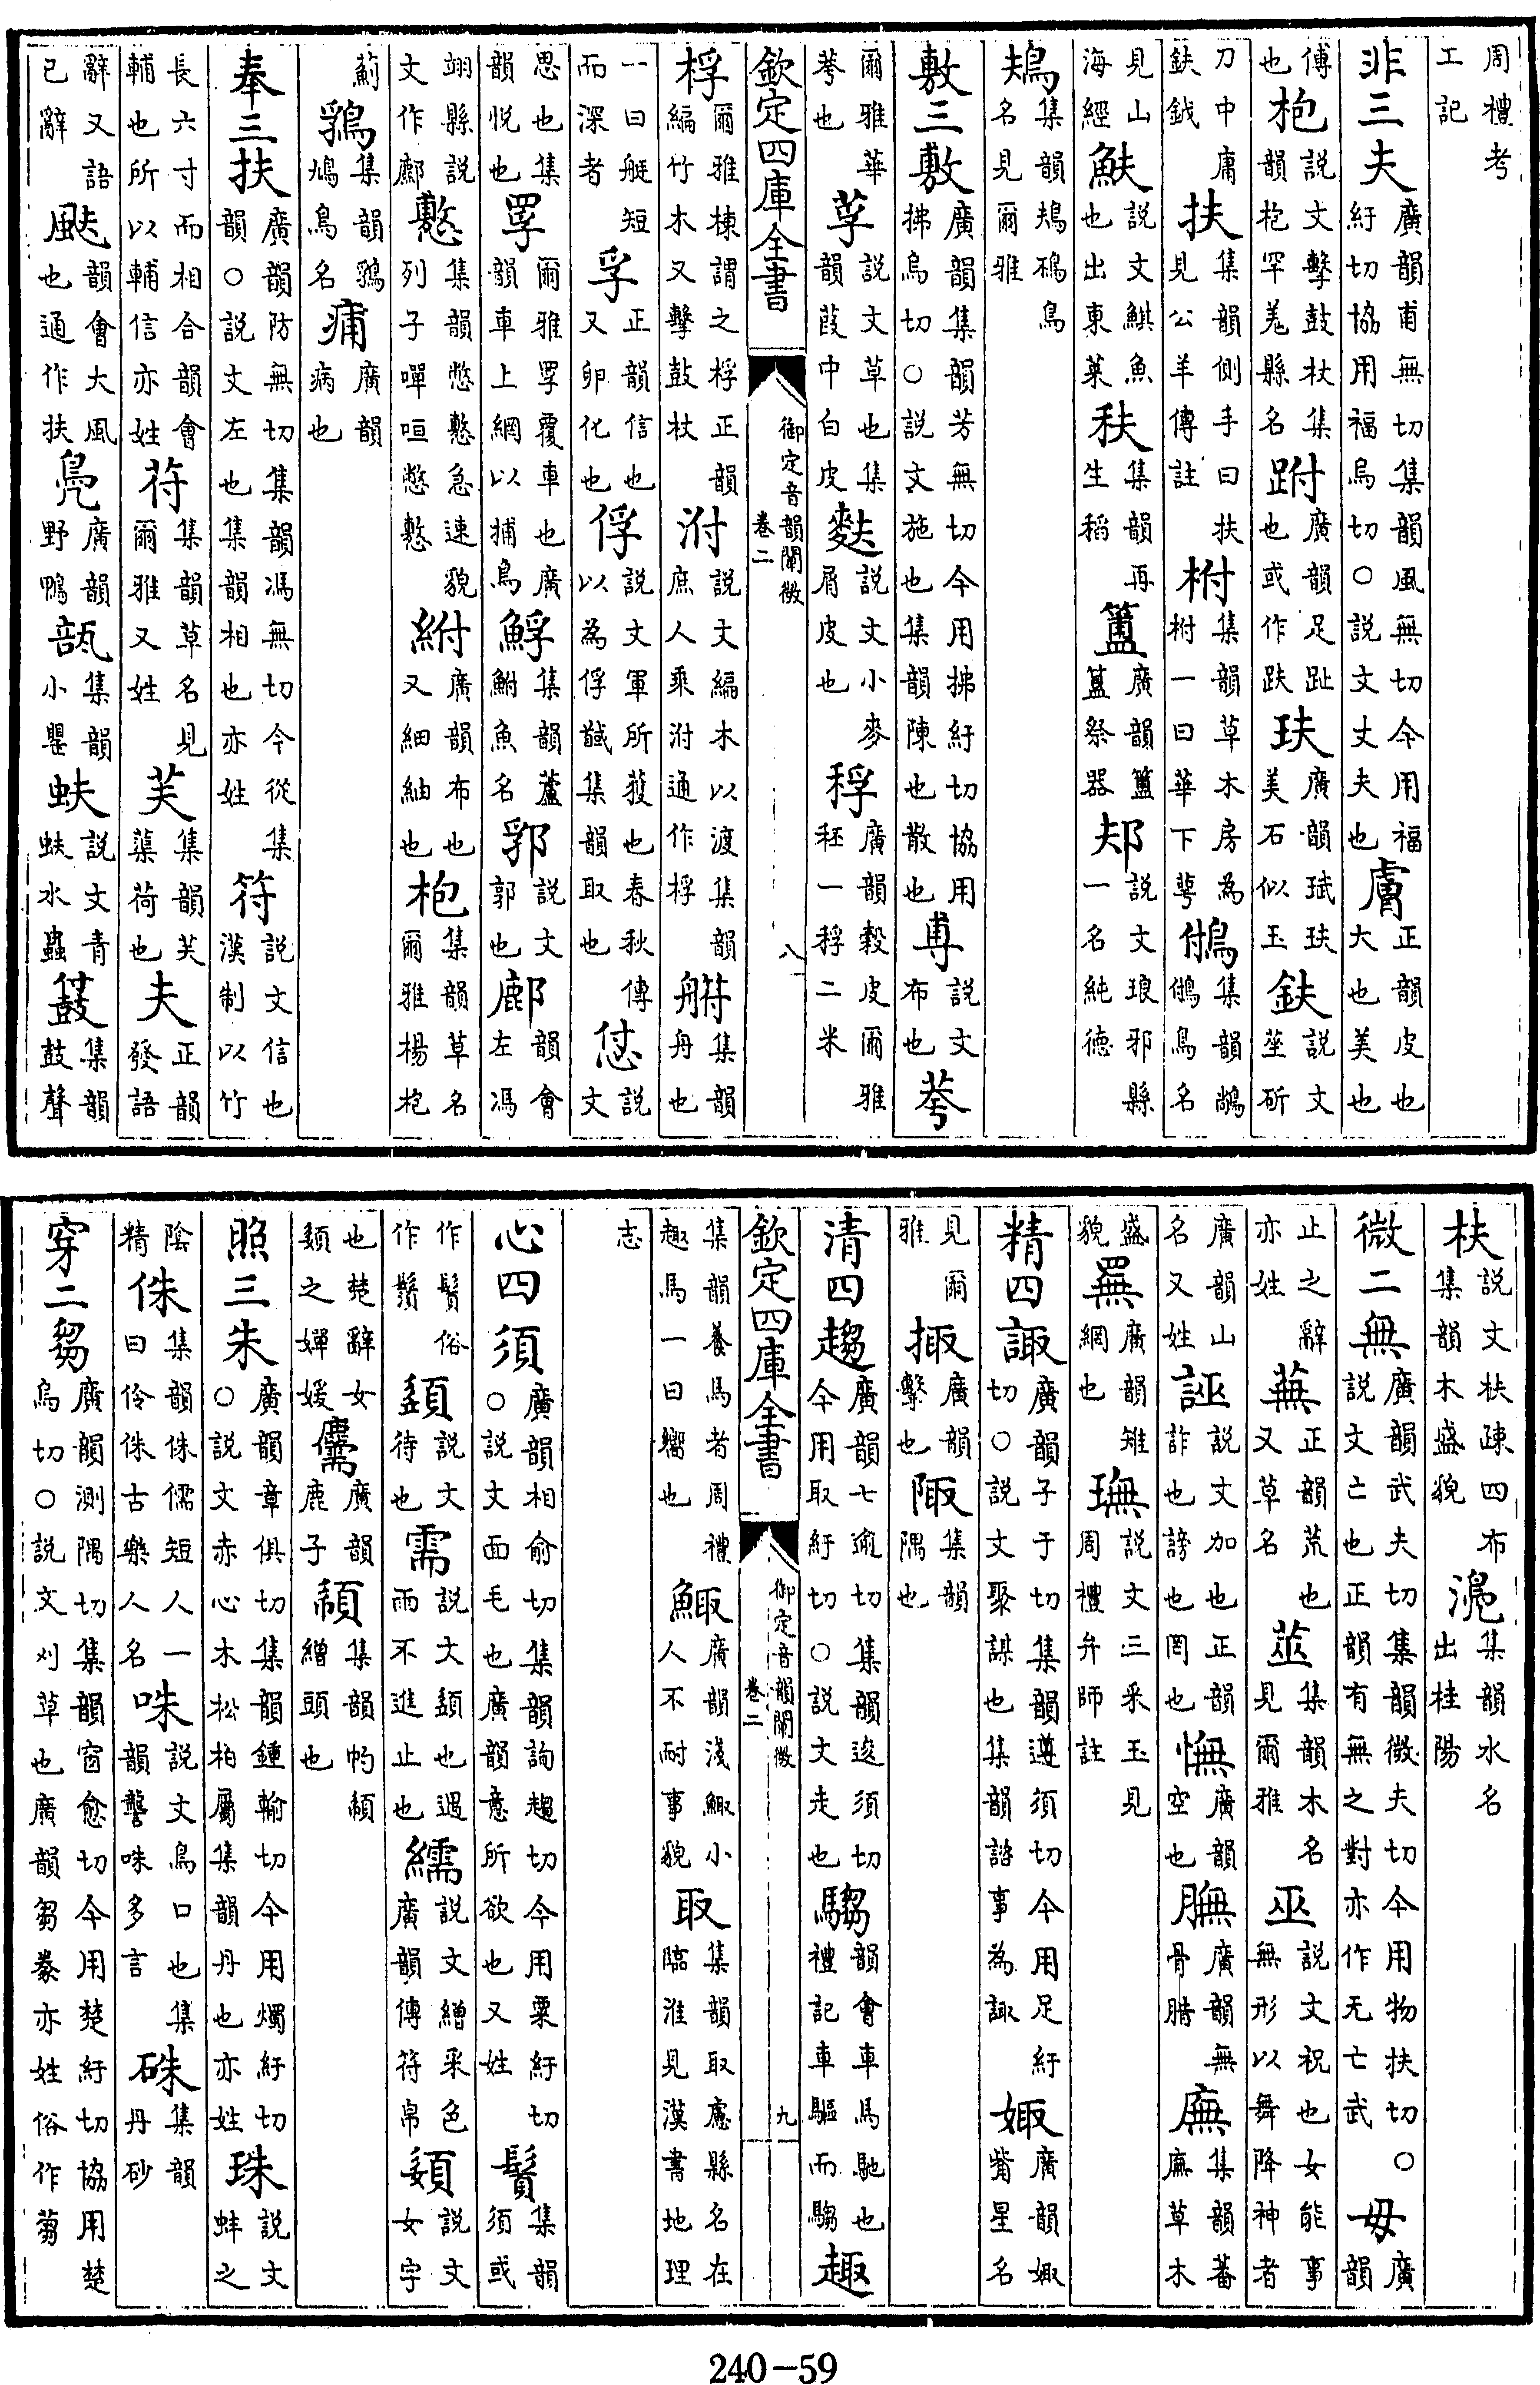 周禮考工記
非三夫廣韻甫無切集韻風無切今用福紆切協用福烏切○說文丈夫也膚正韻皮也大也美也
傅也枹說文擊鼓杖集韻枹罕羗縣名跗廣韻足趾也或作趺玞廣韻珷玞美石似玉鈇說文莝斫
刀中庸鈇鉞扶集韻側手曰扶見公羊傳註柎集韻草木房為柎一曰華下萼集韻鳥名
見山海經說文鯕魚也出東萊䄮集韻再生稻簠廣韻簠簋祭器邞說文琅邪縣一名純德
鳺集韻鳺鴀鳥名見爾雅
敷三敷廣韻集韻芳無切今用拂紆切協用拂烏切○說文施也集韻陳也散也尃說文布也荂
爾雅華荂也莩說文草也集韻葭中白皮麩說文小麥屑皮也稃廣韻穀皮爾雅秠一稃二米
欽定四庫全書 御定音韻闡微 卷二 八
桴爾雅棟謂之桴正韻編竹木又擊鼓杖泭說文編木以渡集韻庶人乘泭通作桴集韻舟也
一曰艇短而深者孚正韻信也又卵化也俘說文軍所獲也春秋傳以為俘聝集韻取也怤說文
思也集韻悅也罦爾雅罦覆車也廣韻車上網以捕鳥䱐集韻魚名郛說文郭也鄜韻會左馮
翊縣說文作䴱懯集韻憋懯急速貌列子嘽咺憋懯紨廣韻布也又細紬也枹集韻草名爾雅楊枹
薊集韻鳥名痡廣韻病也
奉三扶廣韻防無切集韻馮無切今從集韻○說文左也集韻相也亦姓符說文信也漢制以竹
長六寸而相合韻會輔也所以輔信亦姓苻集韻草名見爾雅又姓芙集韻芙蕖荷也夫正韻發語
辭又語已辭颫韻會大風也通作扶鳧廣韻野鴨瓿集韻小罌蚨說文青蚨水蟲集韻鼓聲
枎說文枎疎四布集韻木盛貌集韻水名出桂陽
微二無廣韻武夫切集韻微夫切今用物扶切○說文亡也正韻有無之對亦作无亡武毋廣韻
止之辭亦姓蕪正韻荒也又草名莁集韻木名見爾雅巫說文祝也女能事無形以舞降神者
廣韻山名又姓誣說文加也正韻詐也謗也罔也憮廣韻空也膴廣韻無骨腊廡集韻蕃廡草木
盛貌䍢廣韻雉網也璑說文三采玉見周禮弁師註
精四諏廣韻子于切集韻遵須切今用足紆切○說文聚謀也集韻諮事為諏娵廣韻娵觜星名
見爾雅掫廣韻擊也陬集韻隅也
清四趨廣韻七逾切集韻逡須切今用取紆切○說文走也騶韻會車馬馳也禮記車驅而騶趣
欽定四庫全書 御定音韻闡微 卷二 九
集韻養馬者周禮趣馬一曰嚮也鯫廣韻淺鯫小人不耐事貌取集韻取慮縣名在臨淮見漢書地理
志
心四須廣韻相俞切集韻詢趨切今用粟紆切○說文面毛也廣韻意所欲也又姓鬚集韻須或
作鬚俗作鬚䇓說文待也需說文䇓也遇雨不進止也繻說文繒采色廣韻傳符帛嬃說文女字
也楚辭女嬃之嬋媛廣韻鹿子集韻繒頭也
照三朱廣韻章俱切集韻鍾輸切今用燭紆切○說文赤心木松柏屬集韻丹也亦姓珠說文蚌之
陰精侏集韻侏儒短人一曰伶侏古樂人名咮說文鳥口也集韻讋咮多言硃集韻丹砂
穿二芻廣韻測隅切集韻窗愈切今用楚紆切協用楚烏切○說文刈草也廣韻芻豢亦姓俗作蒭
240-59